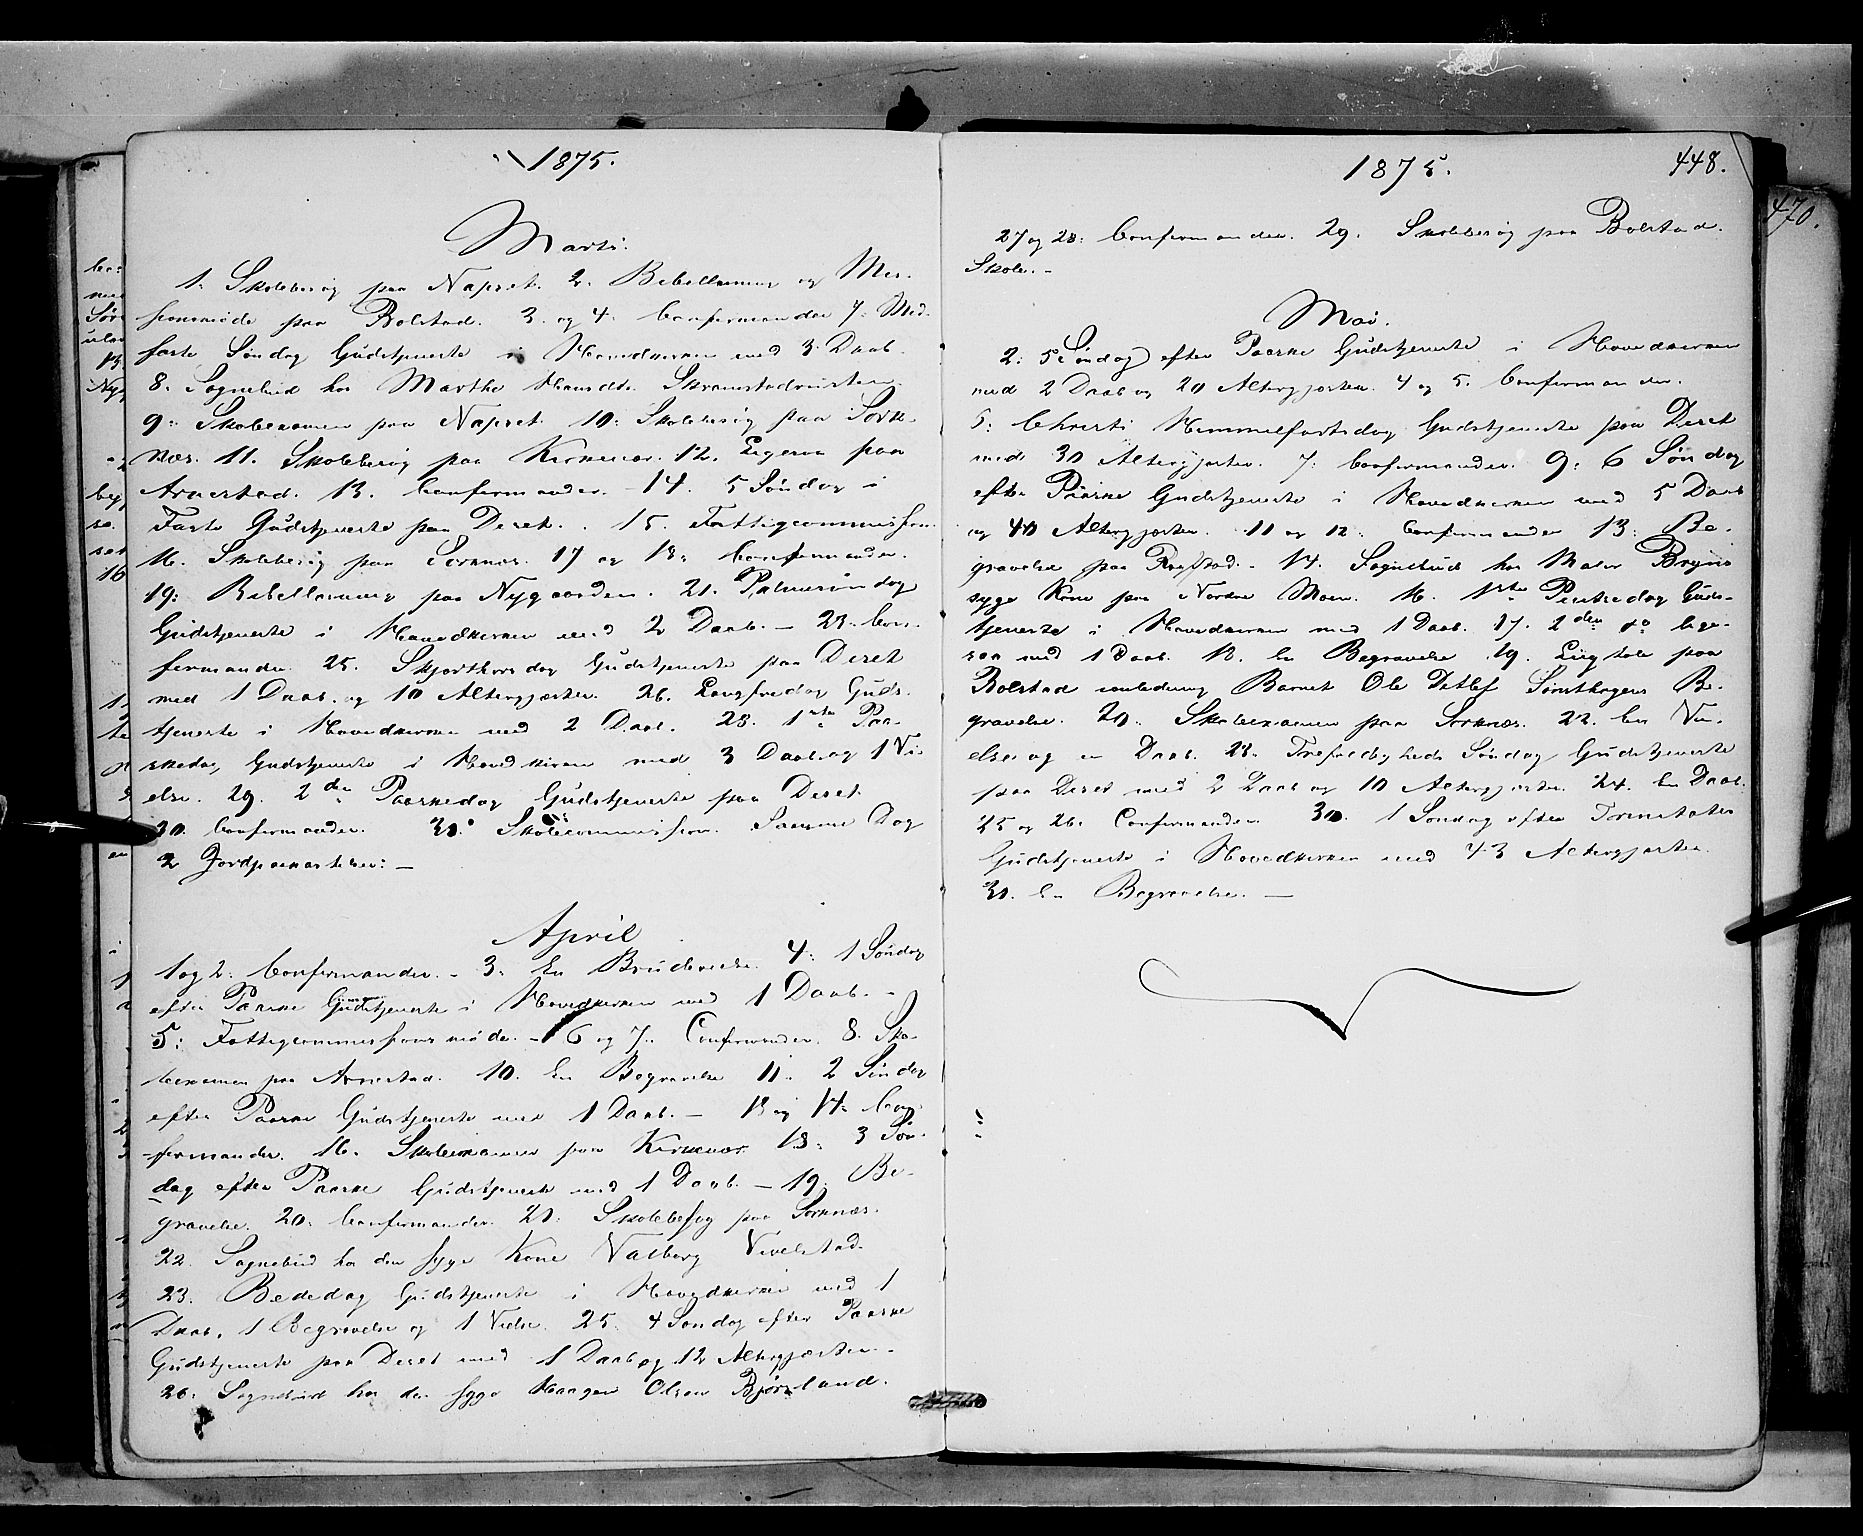 1875.
Marts.
1. Skolebesøg paa Napset. 2. Bibellæsning og Mis-
sionsmøde paa Bolstad. 3. og 4. Confirmander 7. Mid-
faste Søndag Gudstjeneste i Hovedkirken med 3 Daab.
8. Sognebud hos Marthe Hansdtr.
9. Skoleexamen paa Napset. 10. Skolebesøg paa Sork-
næs. 11. Skolebesøg paa Kirkenær. 12. Ligesaa paa
Arnestad. 13. Confirmander. 14. 5 Søndag i
Faste Gudstjeneste paa Deset. 15. Fattigcommission
16. Skolebesøg paa Sorknæs. 17 og 18. Confirmander.
19. Bibellæsning paa Nygaarden. 21. Palmesøndag
Gudstjeneste i Hovedkirken med 2 Daab. – 23. Con-
firmander. 25. Skjærthorsdag Gudstjeneste paa Deset
med 1 Daab og 10 Altergjæster. 26. Langfredag Guds-
tjeneste i Hovedkirken med 2 Daab. 28. 1ste Paa-
skedag Gudstjeneste i Hovedkirken med 3 Daab og 1 Vi-
else. 29. 2den Paaskedag Gudstjeneste paa Deset
30. Confirmander. 30. Skolecommission. Samme Dag
2 Jordpaakastelser. –
April
1 og 2. Confirmander. – 3. En Brudevielse. 4. 1 Søndag
efter Paaske Gudstjeneste i Hovedkirken med 1 Daab. –
5. Fattigcommissionsmøde. – 6 og 7. Confirmander. 8. Sko-
leexamen paa Arnestad. 10. En Begravelse 11. 2 Søndag
efter Paaske Gudstjeneste med 1 Daab. – 13 og 14. Con-
firmander. 16. Skoleexamen paa Kirkenær. 18. 3 Søn-
dag efter Paaske Gudstjeneste med 1 Daab. – 19. Be-
gravelse. 20. Confirmander. 21. Skolebesøg paa Sorknæs.
22. Sognebud hos den syge Kone Valborg
23. Bededag Gudstjeneste i Hovedkirken med 1
Daab, 1 Begravelse og 1 Vielse. 25. 4 Søndag efter Paaske
Gudstjeneste paa Deset med 1 Daab og 12 Altergjæster. –
26. Sognebud hos den syge Haagen Olsen Bjørnland.
1875.
448.
470.
27 og 28. Confirmander. 29. Skolebesøg paa Bolstad
Skole. –
Mai.
2. 5 Søndag efter Paaske Gudstjeneste i Hovedkirken
med 2 Daab og 20 Altergjæster. 4 og 5. Confirmander.
6. Christi Himmelfartsdag Gudstjeneste paa Deset
med 30 Altergjæster. 7. Confirmander. 9. 6 Søndag
efter Paaske Gudstjeneste i Hovedkirken med 5 Daab
og 40 Altergjæster. 11 og 12. Confirmander 13. Be-
gravelse paa – 14. Sognebud hos Maler Bryns
syge Kone paa Nordre Moen. 16. 1ste Pintsedag Guds-
tjeneste i Hovedkirken med 1 Daab. 17. 2den do lige-
saa med 1 Daab. 18. En Begravelse 19. Liigtale paa
Bolstad anledning Barnet Ole Detlef Be-
gravelse. 20. Skoleexamen paa Sorknæs. 22. En Vi-
else og en Daab. 23. Trefoldigheds Søndag Gudstjeneste
paa Deset med 2 Daab og 10 Altergjæster. 24. En Daab.
25 og 26. Confirmander. 30. 1 Søndag efter Trinitatis
Gudstjeneste i Hovedkirken med 43 Altergjæster.
30. En Begravelse. –